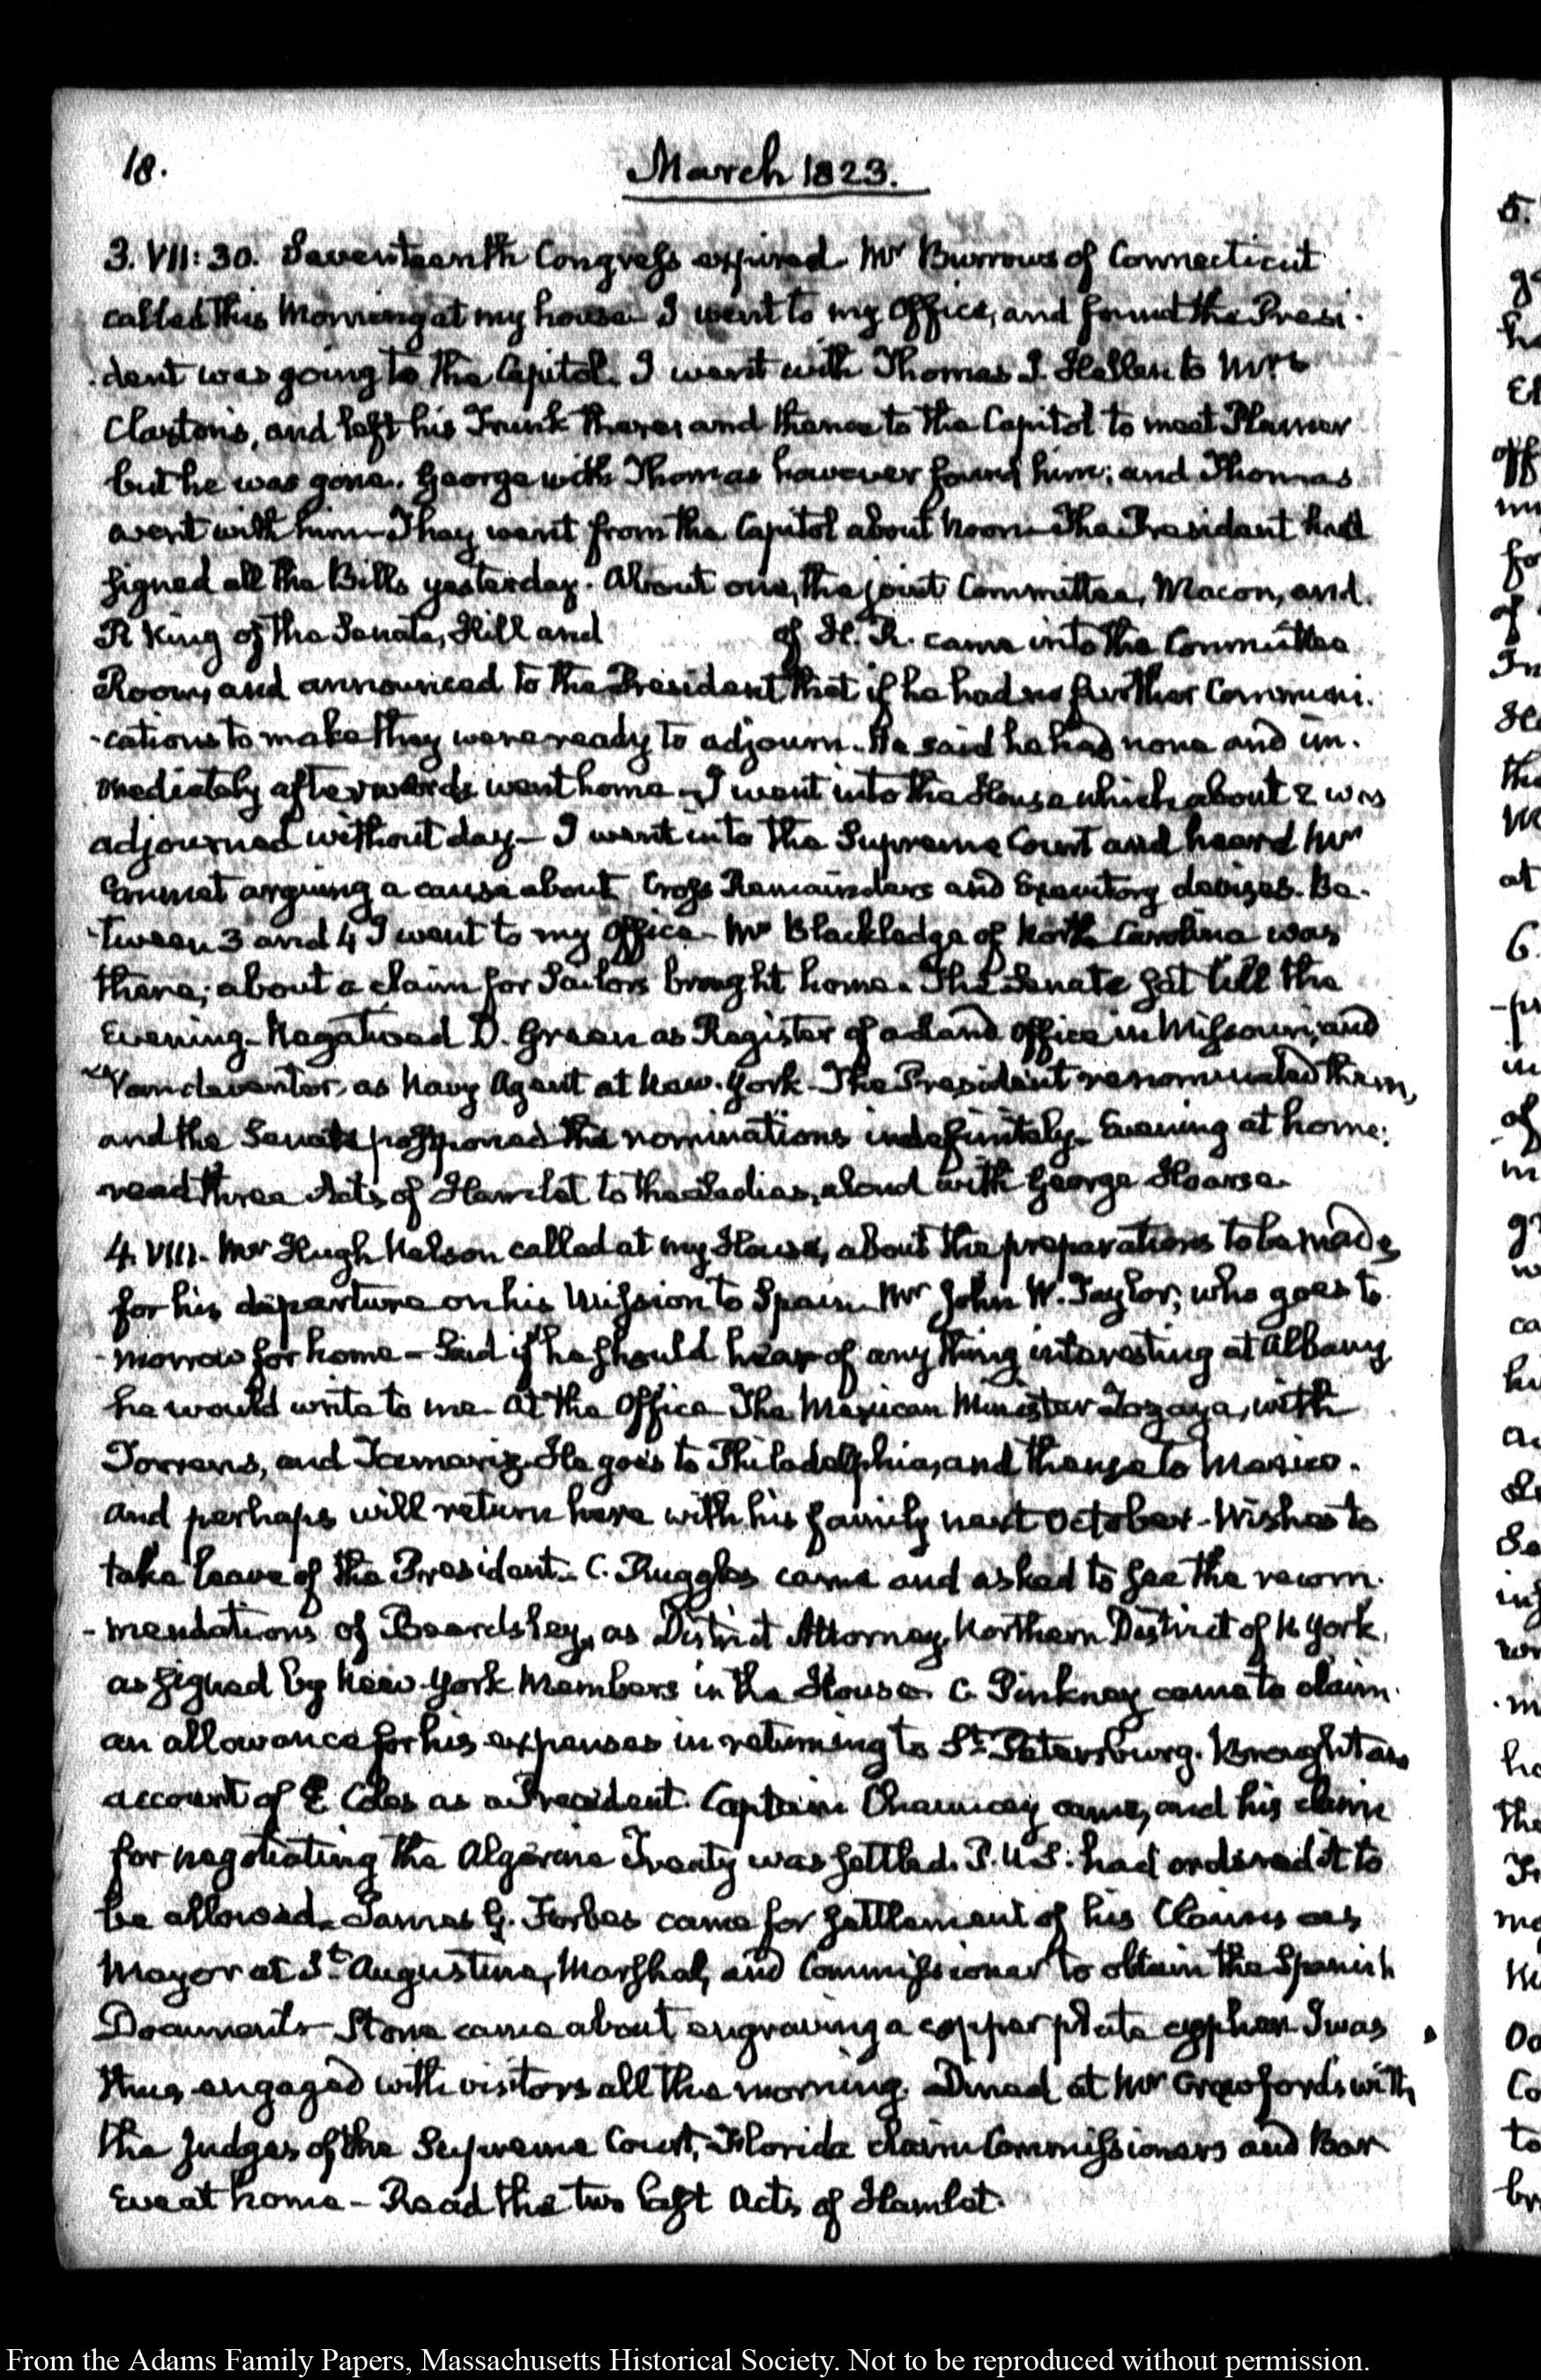 18.
March 1823.
3. VII: 30. Seventeenth Congress expired. Mr Burrows of Connecticut
called this Morning at my house. I went to my Office, and found the Presi-
dent was going to the Capitol. I went with Thomas J. Hellen to Mrs
Claxton's, and left his Trunk there, and thence to the Capitol to meet Plumer
but he was gone. George with Thomas however found him; and Thomas
went with him. They went from the Capitol about Noon. The President had
signed all the Bills yesterday. About one, the joint Committee, Macon, and
R King of the Senate, Hill and of H. R. came into the Committee
Room, and announced to the President that if he had no further Communi-
-cations to make they were ready to adjourn. He said he had none and im-
mediately afterwards went home. I went into the House which about 2 was
adjourned without day— I went into the Supreme Court and heard Mr
Emmet arguing a cause about Cross Remainders and Executory devises. Be-
-tween 3 and 4 I went to my Office— Mr Blackledge of North Carolina was
there; about a claim for Sailors brought home. The Senate sat till the
Evening— Negatived D. Green as Register of a Land Office in Missouri, and
Vandeventer, as Navy Agent at New-York— The President renominated them,
and the Senate postponed the nominations indefinitely. Evening at home:
read three Acts of Hamlet to the Ladies, aloud with George Hoarse.
4. VIII. Mr Hugh Nelson called at my House, about the preparations to be made
for his departure on his Mission to Spain. Mr John W. Taylor, who goes to
-morrow for home— Said if he should hear of any thing interesting at Albany
he would write to me. At the Office— The Mexican Minister Zozaya, with
Torrens, and Tamariz. He goes to Philadelphia, and thence to Mexico.
and perhaps will return here with his family next October— Wishes to
take leave of the President. C. Ruggles came and asked to see the recom-
-mendations of Beardsley, as District Attorney, Northern District of N York,
as signed by New-York Members in the House. C. Pinkney came to claim
an allowance for his expenses in returning to St. Petersburg. Brought an
account of E Coles as a Precedent. Captain Chauncey came, and his claim
for negotiating the Algerine Treaty was settled. P. U S. had ordered it to
be allowed. James G. Forbes came for settlement of his Claims as
Mayor at St. Augustine, Marshal, and Commissioner to obtain the Spanish
Documents— Stone came about engraving a copper plate cypher. I was
thus engaged with visitors all the morning. Dined at Mr Crawford's with
the Judges of the Supreme Court, Florida claim Commissioners and Bar
Eve at home— Read the two last Acts of Hamlet.
From the Adams Family Papers, Massachusetts Historical Society. Not to be reproduced without permission.